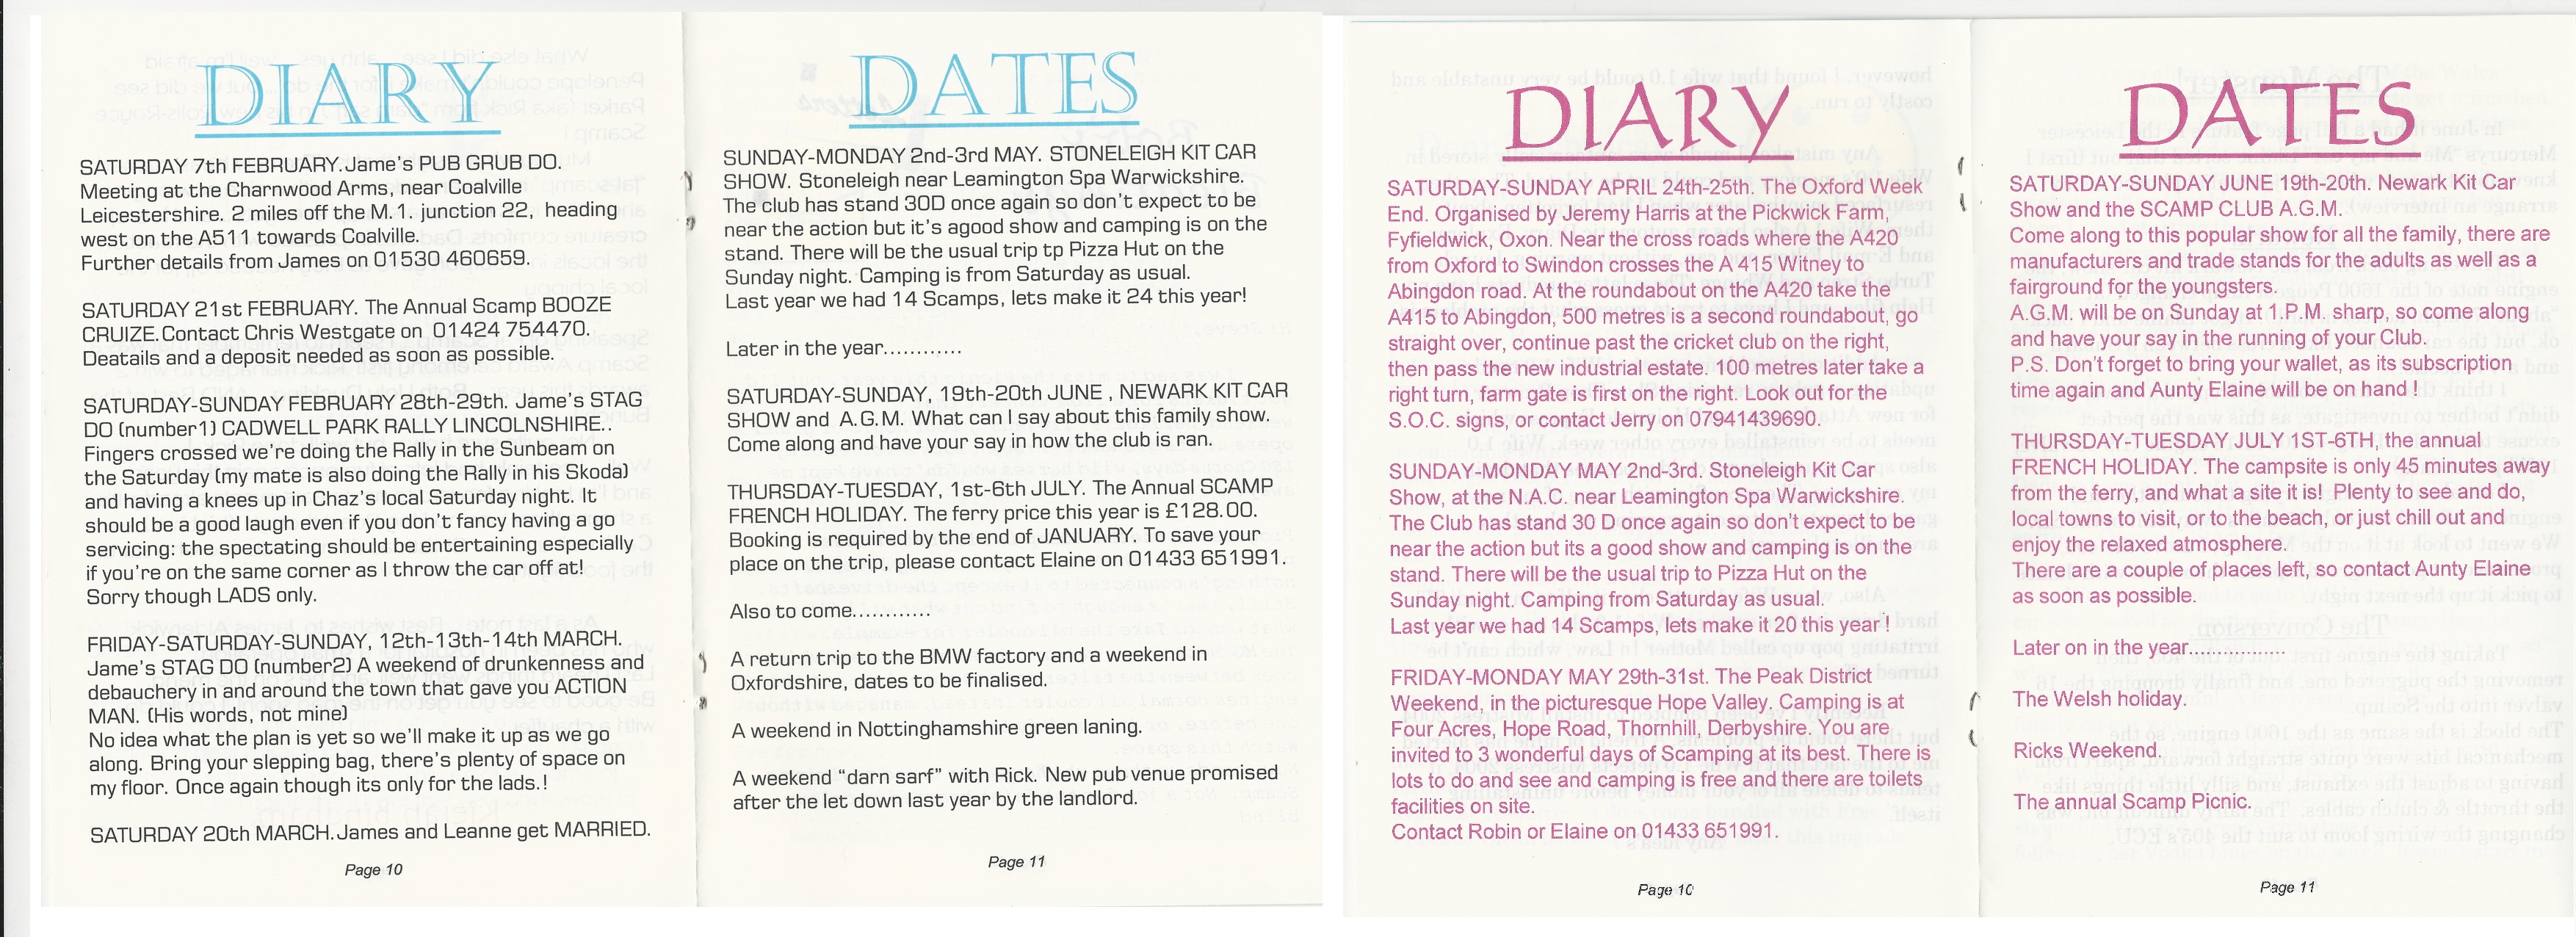 DIARY
SATURDAY 7th FEBRUARY. Jame's PUB GRUB DO.
Meeting at the Charnwood Arms, near Coalville
Leicestershire. 2 miles off the M.1. junction 22, heading
west on the A511 towards Coalville.
Further details from James on 01530 460659.
SATURDAY 21st FEBRUARY. The Annual Scamp BOOZE
CRUIZE. Contact Chris Westgate on 01424 754470.
Deatails and a deposit needed as soon as possible.
SATURDAY-SUNDAY FEBRUARY 28th-29th. Jame's STAG
DO (number1) CADWELL PARK RALLY LINCOLNSHIRE..
Fingers crossed we're doing the Rally in the Sunbeam on
the Saturday (my mate is also doing the Rally in his Skoda)
and having a knees up in Chaz's local Saturday night. It
should be a good laugh even if you don't fancy having a go
servicing: the spectating should be entertaining especially
if you're on the same corner as I throw the car off at!
Sorry though LADS only.
FRIDAY-SATURDAY-SUNDAY, 12th-13th-14th MARCH.
Jame's STAG DO (number2) A weekend of drunkenness and
debauchery in and around the town that gave you ACTION
MAN. (His words, not mine)
No idea what the plan is yet so we'll make it up as we go
along. Bring your slepping bag, there's plenty of space on
my floor. Once again though its only for the lads.!
SATURDAY 20th MARCH. James and Leanne get MARRIED.
Page 10
DATES
SUNDAY-MONDAY 2nd-3rd MAY. STONELEIGH KIT CAR
SHOW. Stoneleigh near Leamington Spa Warwickshire.
The club has stand 30D once again so don't expect to be
near the action but it's agood show and camping is on the
stand. There will be the usual trip tp Pizza Hut on the
Sunday night. Camping is from Saturday as usual.
Last year we had 14 Scamps, lets make it 24 this year!
Later in the year............
SATURDAY-SUNDAY, 19th-20th JUNE , NEWARK KIT CAR
SHOW and A.G.M. What can I say about this family show.
Come along and have your say in how the club is ran.
THURSDAY-TUESDAY, 1st-6th JULY. The Annual SCAMP
FRENCH HOLIDAY. The ferry price this year is £128.00.
Booking is required by the end of JANUARY. To save your
place on the trip, please contact Elaine on 01433 651991.
Also to come............
A return trip to the BMW factory and a weekend in
Oxfordshire, dates to be finalised.
A weekend in Nottinghamshire green laning.
A weekend "darn sarf" with Rick. New pub venue promised
after the let down last year by the landlord.
Page 11
DIARY
SATURDAY-SUNDAY APRIL 24th-25th. The Oxford Week
End. Organised by Jeremy Harris at the Pickwick Farm,
Fyfieldwick, Oxon. Near the cross roads where the A420
from Oxford to Swindon crosses the A 415 Witney to
Abingdon road. At the roundabout on the A420 take the
A415 to Abingdon, 500 metres is a second roundabout, go
straight over, continue past the cricket club on the right,
then pass the new industrial estate. 100 metres later take a
right turn, farm gate is first on the right. Look out for the
S.O.C. signs, or contact Jerry on 07941439690.
SUNDAY-MONDAY MAY 2nd-3rd. Stoneleigh Kit Car
Show, at the N.A.C. near Leamington Spa Warwickshire.
The Club has stand 30 D once again so don't expect to be
near the action but its a good show and camping is on the
stand. There will be the usual trip to Pizza Hut on the
Sunday night. Camping from Saturday as usual.
Last year we had 14 Scamps, lets make it 20 this year !
FRIDAY-MONDAY MAY 29th-31st. The Peak District
Weekend, in the picturesque Hope Valley. Camping is at
Four Acres, Hope Road, Thornhill, Derbyshire. You are
invited to 3 wonderful days of Scamping at its best. There is
lots to do and see and camping is free and there are toilets
facilities on site.
Contact Robin or Elaine on 01433 651991.
Page 10
DATES
SATURDAY-SUNDAY JUNE 19th-20th. Newark Kit Car
Show and the SCAMP CLUB A.G.M.
Come along to this popular show for all the family, there are
manufacturers and trade stands for the adults as well as a
fairground for the youngsters.
A.G.M. will be on Sunday at 1.P.M. sharp, so come along
and have your say in the running of your Club.
P.S. Don't forget to bring your wallet, as its subscription
time again and Aunty Elaine will be on hand !
THURSDAY-TUESDAY JULY 1ST-6TH, the annual
FRENCH HOLIDAY. The campsite is only 45 minutes away
from the ferry, and what a site it is! Plenty to see and do,
local towns to visit, or to the beach, or just chill out and
enjoy the relaxed atmosphere.
There are a couple of places left, so contact Aunty Elaine
as soon as possible.
Later on in the year................
The Welsh holiday.
Ricks Weekend.
The annual Scamp Picnic.
Page 11